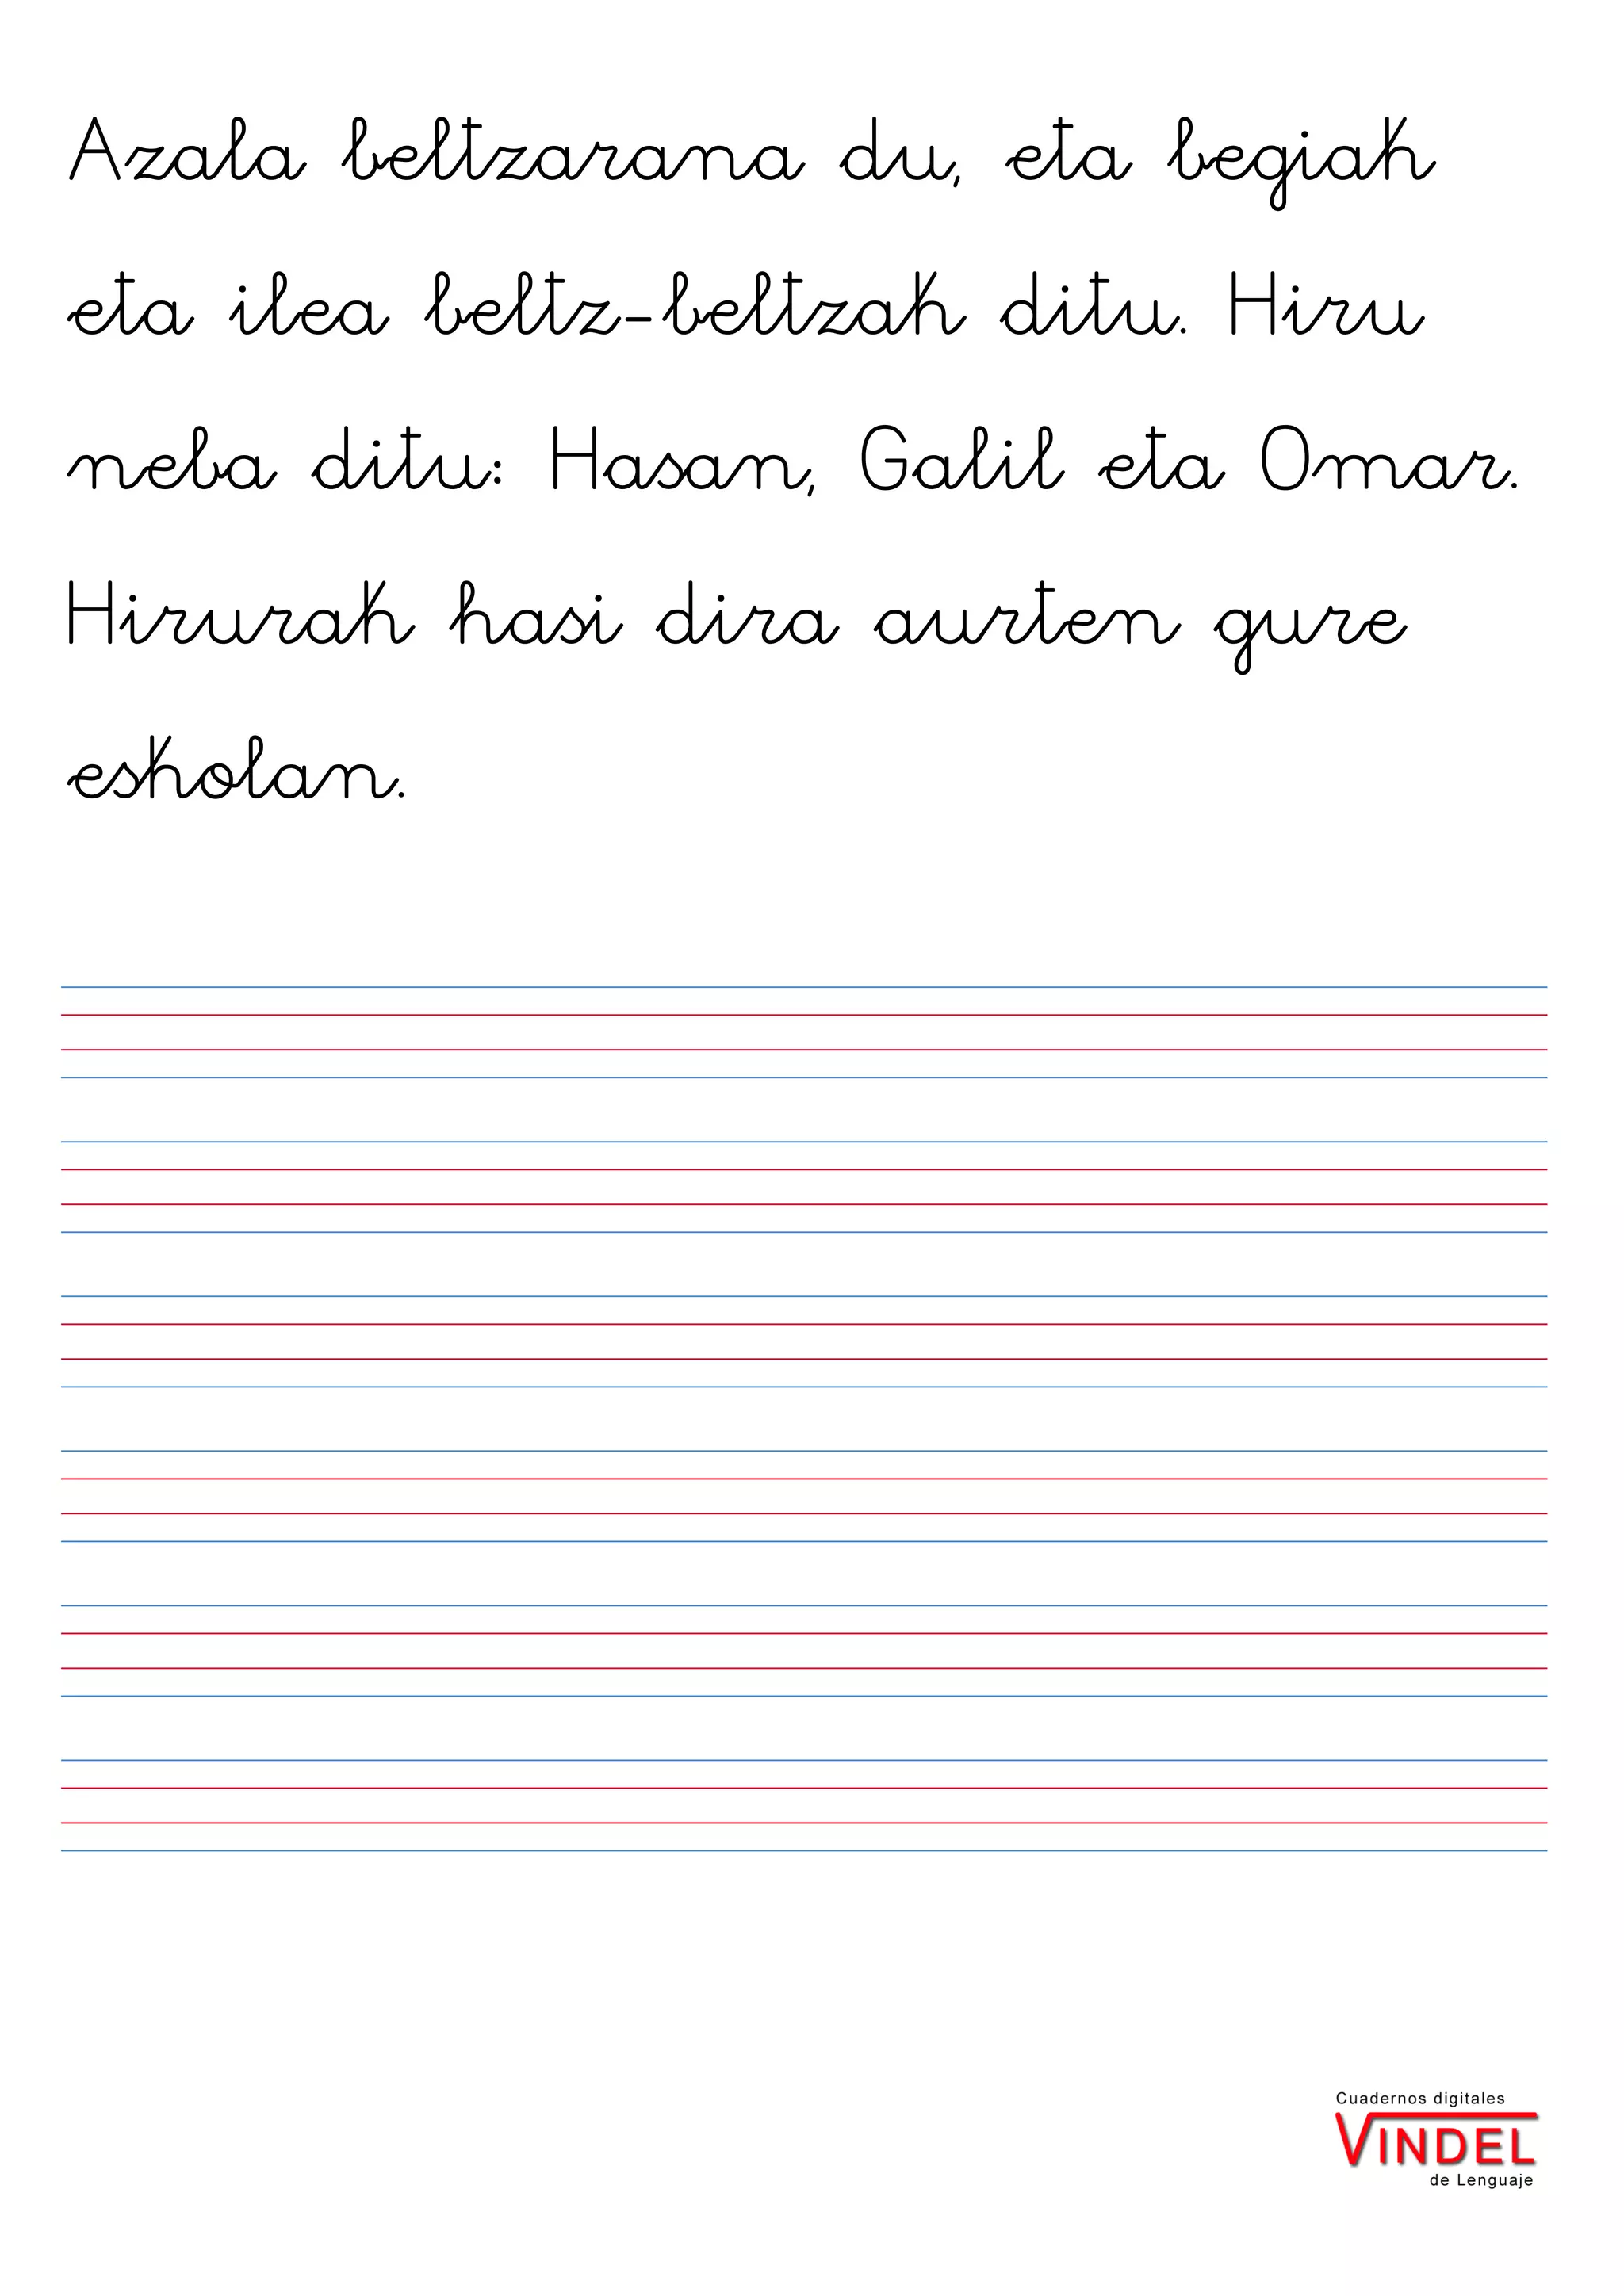 Azala beltzarana du, eta begiak
eta ilea beltz-beltzak ditu. Hiru
neba ditu: Hasan, Galil eta Omar.
Hirurak hasi dira aurten gure
eskolan.
Cuadernos digitales
VINDEL
de Lenguaje